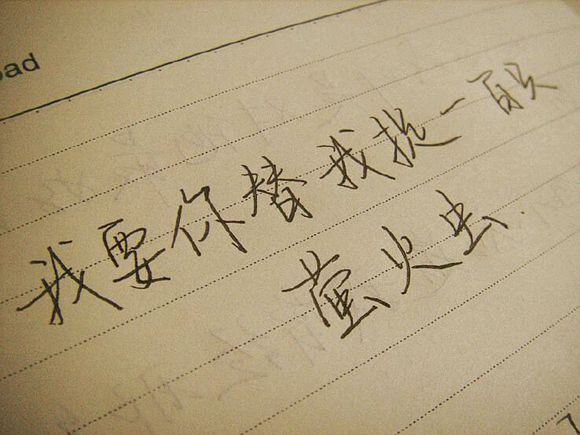 oad
我要你替我捉一百只
萤火虫.